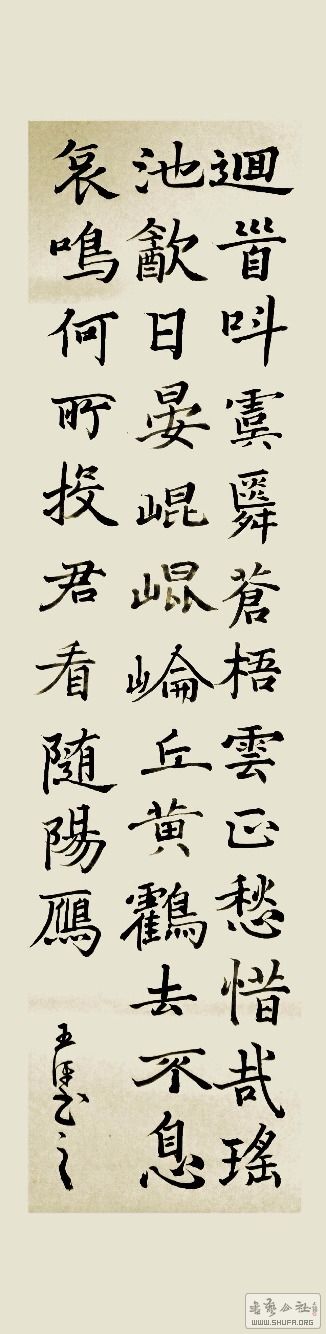 迴首叫虞舜蒼梧雲正愁惜哉瑤
池㱃日晏崐崐崘丘黄鸖去不息
哀鳴何所投君看随陽鴈
王书之
書藝公社
WWW.SHUFA.ORG